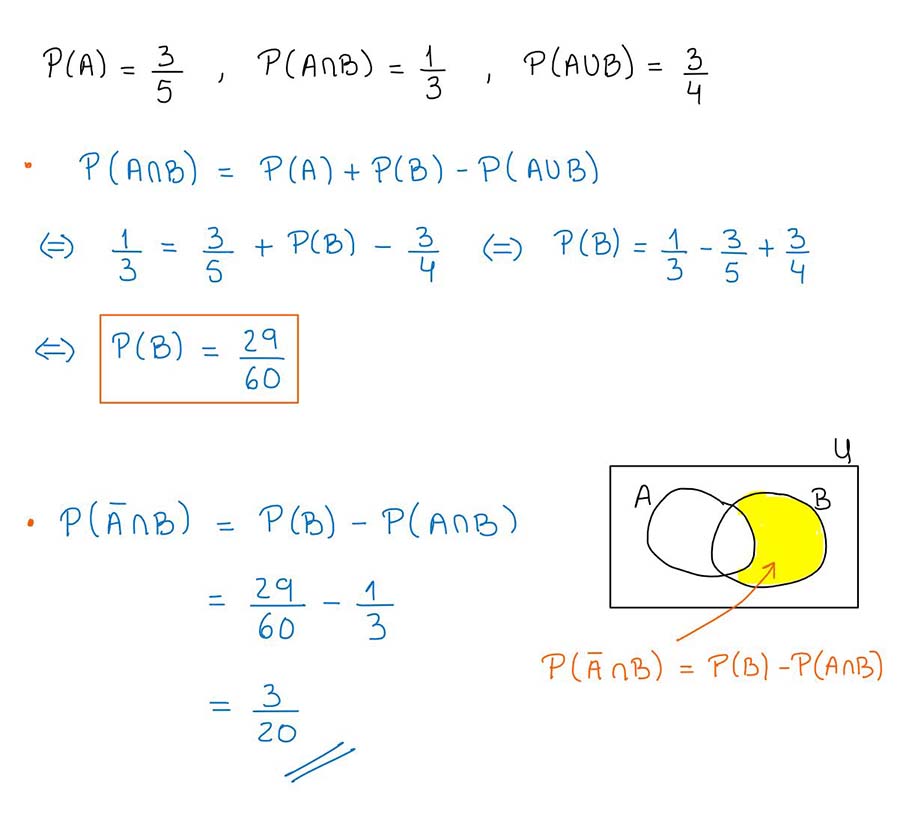 P(A) = 3/5 , P(A∩B) = 1/3 , P(A∪B) = 3/4
• P(A∩B) = P(A) + P(B) - P(A∪B)
⇔ 1/3 = 3/5 + P(B) - 3/4 ⇔ P(B) = 1/3 - 3/5 + 3/4
⇔ P(B) = 29/60
U
A B
• P(Ā∩B) = P(B) - P(A∩B)
= 29/60 - 1/3
P(Ā∩B) = P(B) - P(A∩B)
= 3/20